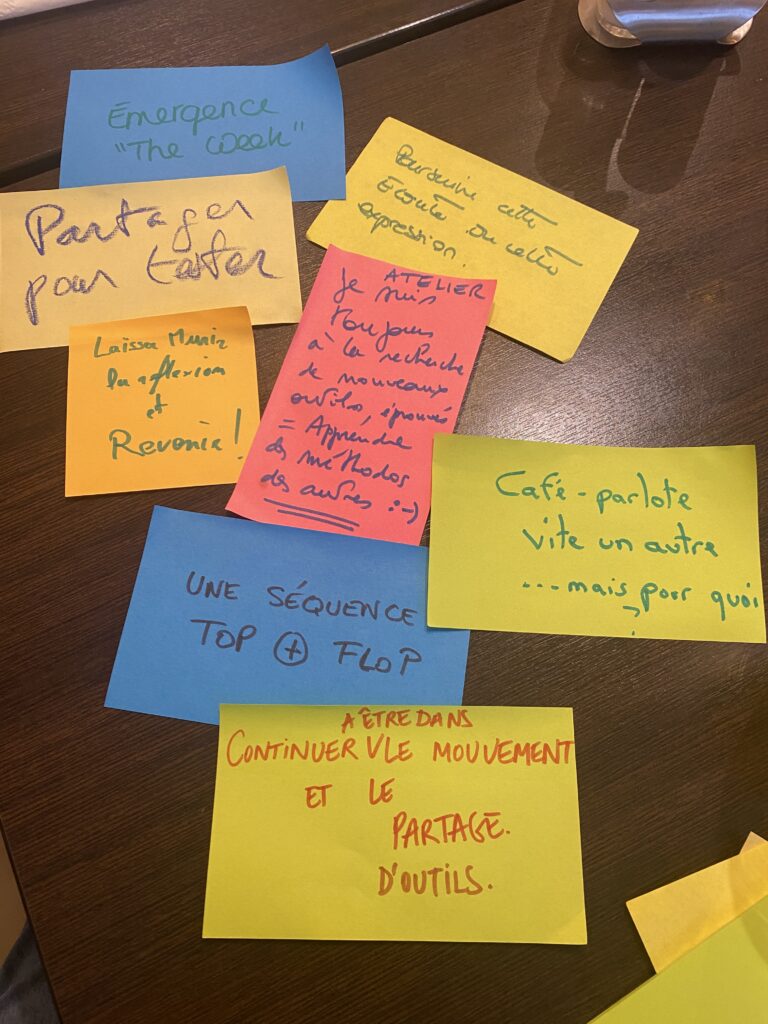 Émergence
"The Week"
Partager
pour tester
Poursuivre cette
écoute ou cette
expression.
ATELIER
Je suis
toujours
à la recherche
de nouveaux
outils, éprouvés
= Apprendre
des méthodos
des autres :-)
Laisser Murir
la réflexion
et
Revenir !
Café-parlote
vite un autre
... mais pour quoi
?
UNE SÉQUENCE
TOP + FLOP
A ÊTRE DANS
CONTINUER V LE MOUVEMENT
ET LE
PARTAGE.
D'OUTILS.